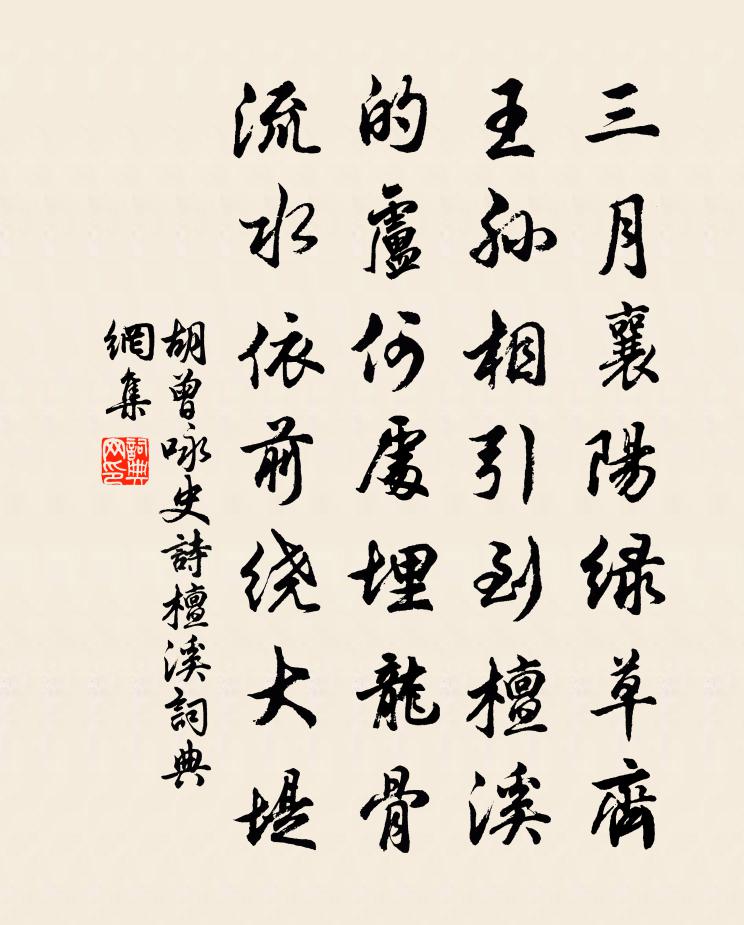 三月襄陽绿草齊
王孙相引到檀溪
的盧何處埋龍骨
流水依前绕大堤
胡曾咏史詩檀溪詞典
網集
詞典
网印